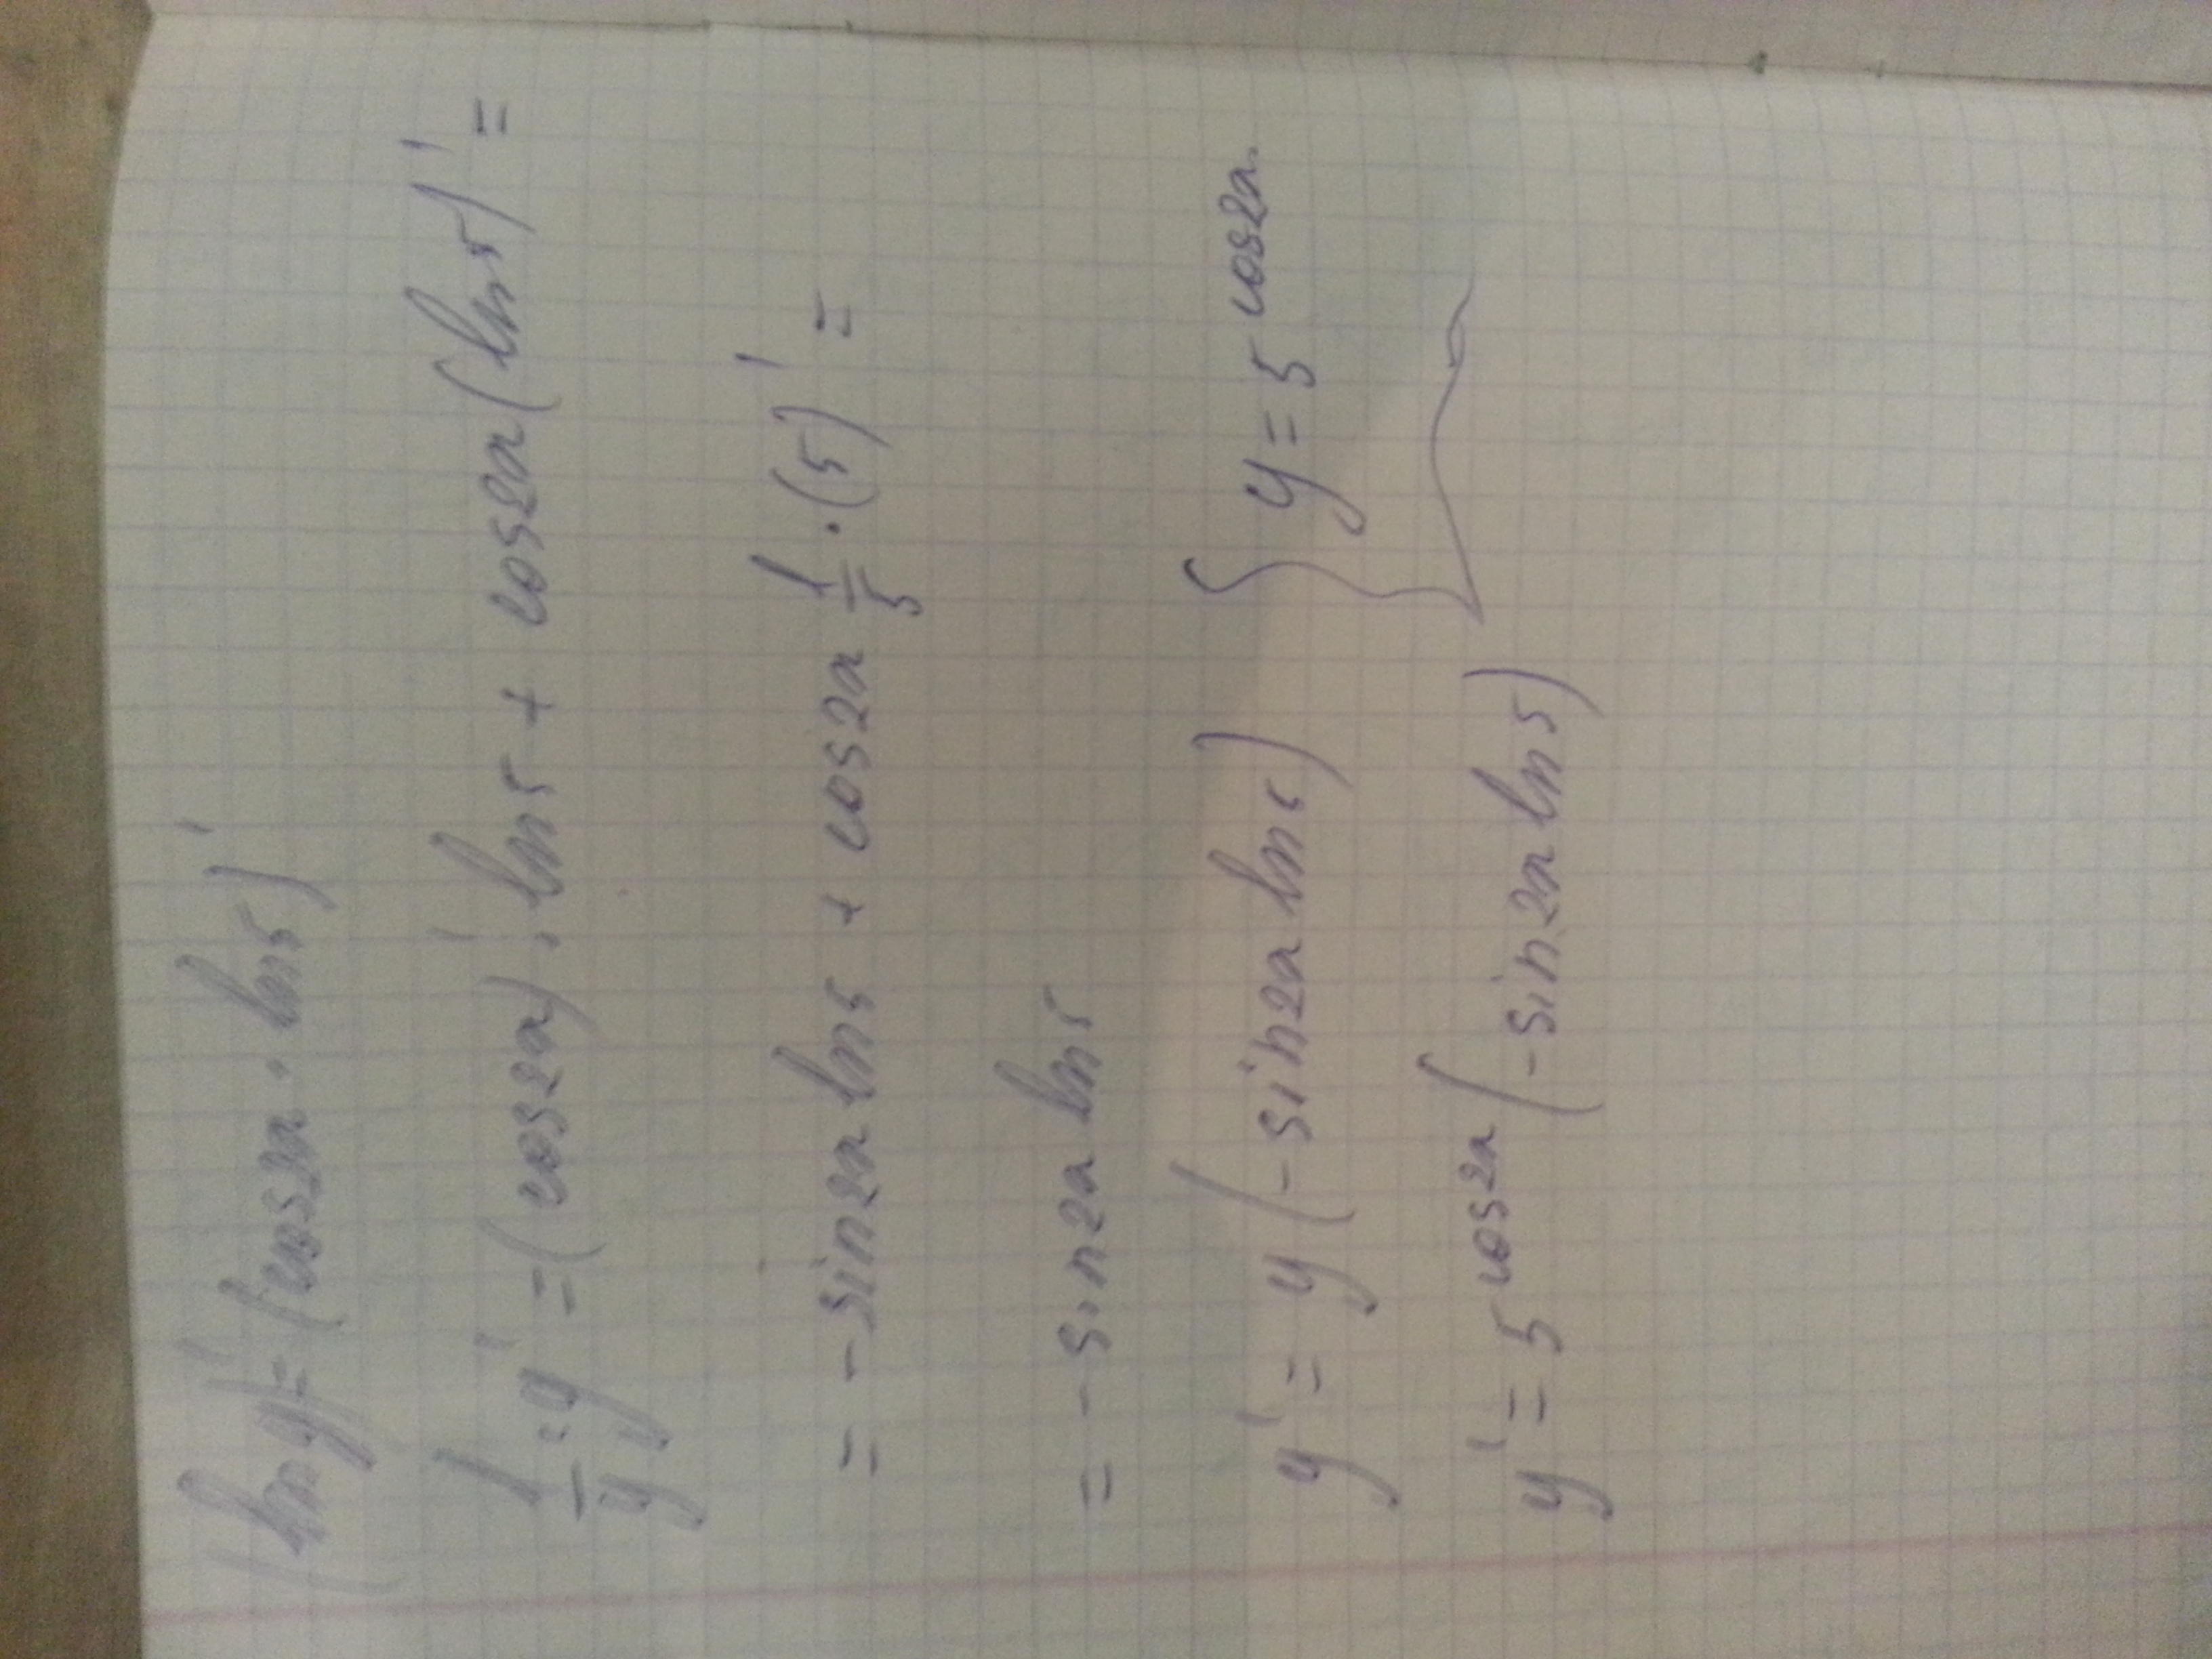 (ln y)' = (cos2x · ln5)'
1/y · y' = (cos2x)' · ln5 + cos2x(ln5)' =
= -sin2x ln5 + cos2x 1/5 · (5)' =
= -sin2x ln5
y' = y(-sin2x ln5) { y = 5^cos2x.
y' = 5^cos2x (-sin2x ln5)